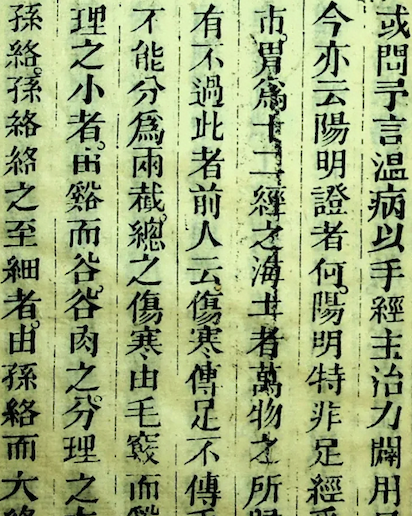 或問子言溫病以手經主治力闢用
今亦云陽明證者何陽明特非足經
市胃爲十二經之海土者萬物之所歸
有不過此者前人云傷寒傳足不傳
不能分爲兩截總之傷寒由毛竅而
理之小者由谿而谷谷肉之分理之
孫絡孫絡絡之至細者由孫絡而大